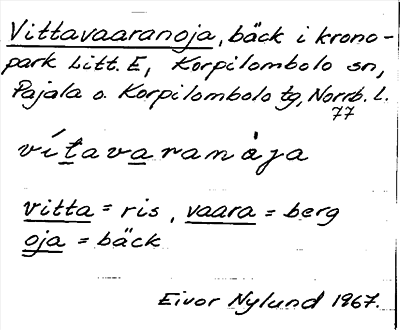 Vittavaaranoja, bäck i krono-
park Litt. E, Korpilombolo sn,
Pajala o. Korpilombolo tg, Norrb. l.
77
vítavaramȧja
vitta = ris, vaara = berg
oja = bäck
Eivor Nylund 1967.